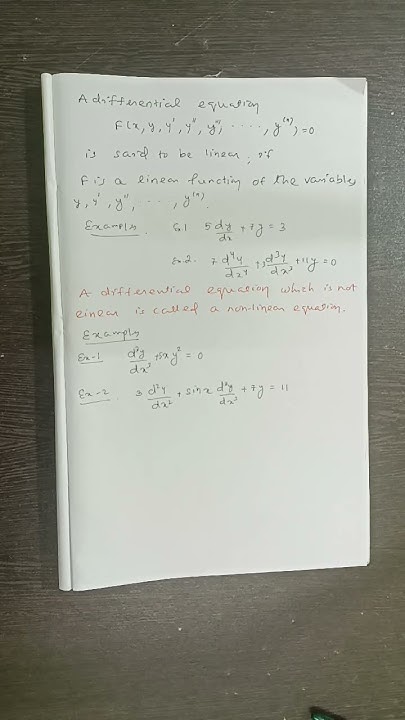 A differential equation
F(x, y, y', y'', y''', ....., y^(n)) = 0
is said to be linear, if
F is a linear function of the variables
y, y', y'', ..., y^(n).
Examples. Ex.1 5 dy/dx + 7y = 3
Ex.2. 7 d⁴y/dx⁴ + 3 d³y/dx³ + 11y = 0
A differential equation which is not
linear is called a non-linear equation.
Examples
Ex-1 d³y/dx³ + 5xy² = 0
Ex-2 3 d²y/dx² + sin x + 7y = 11